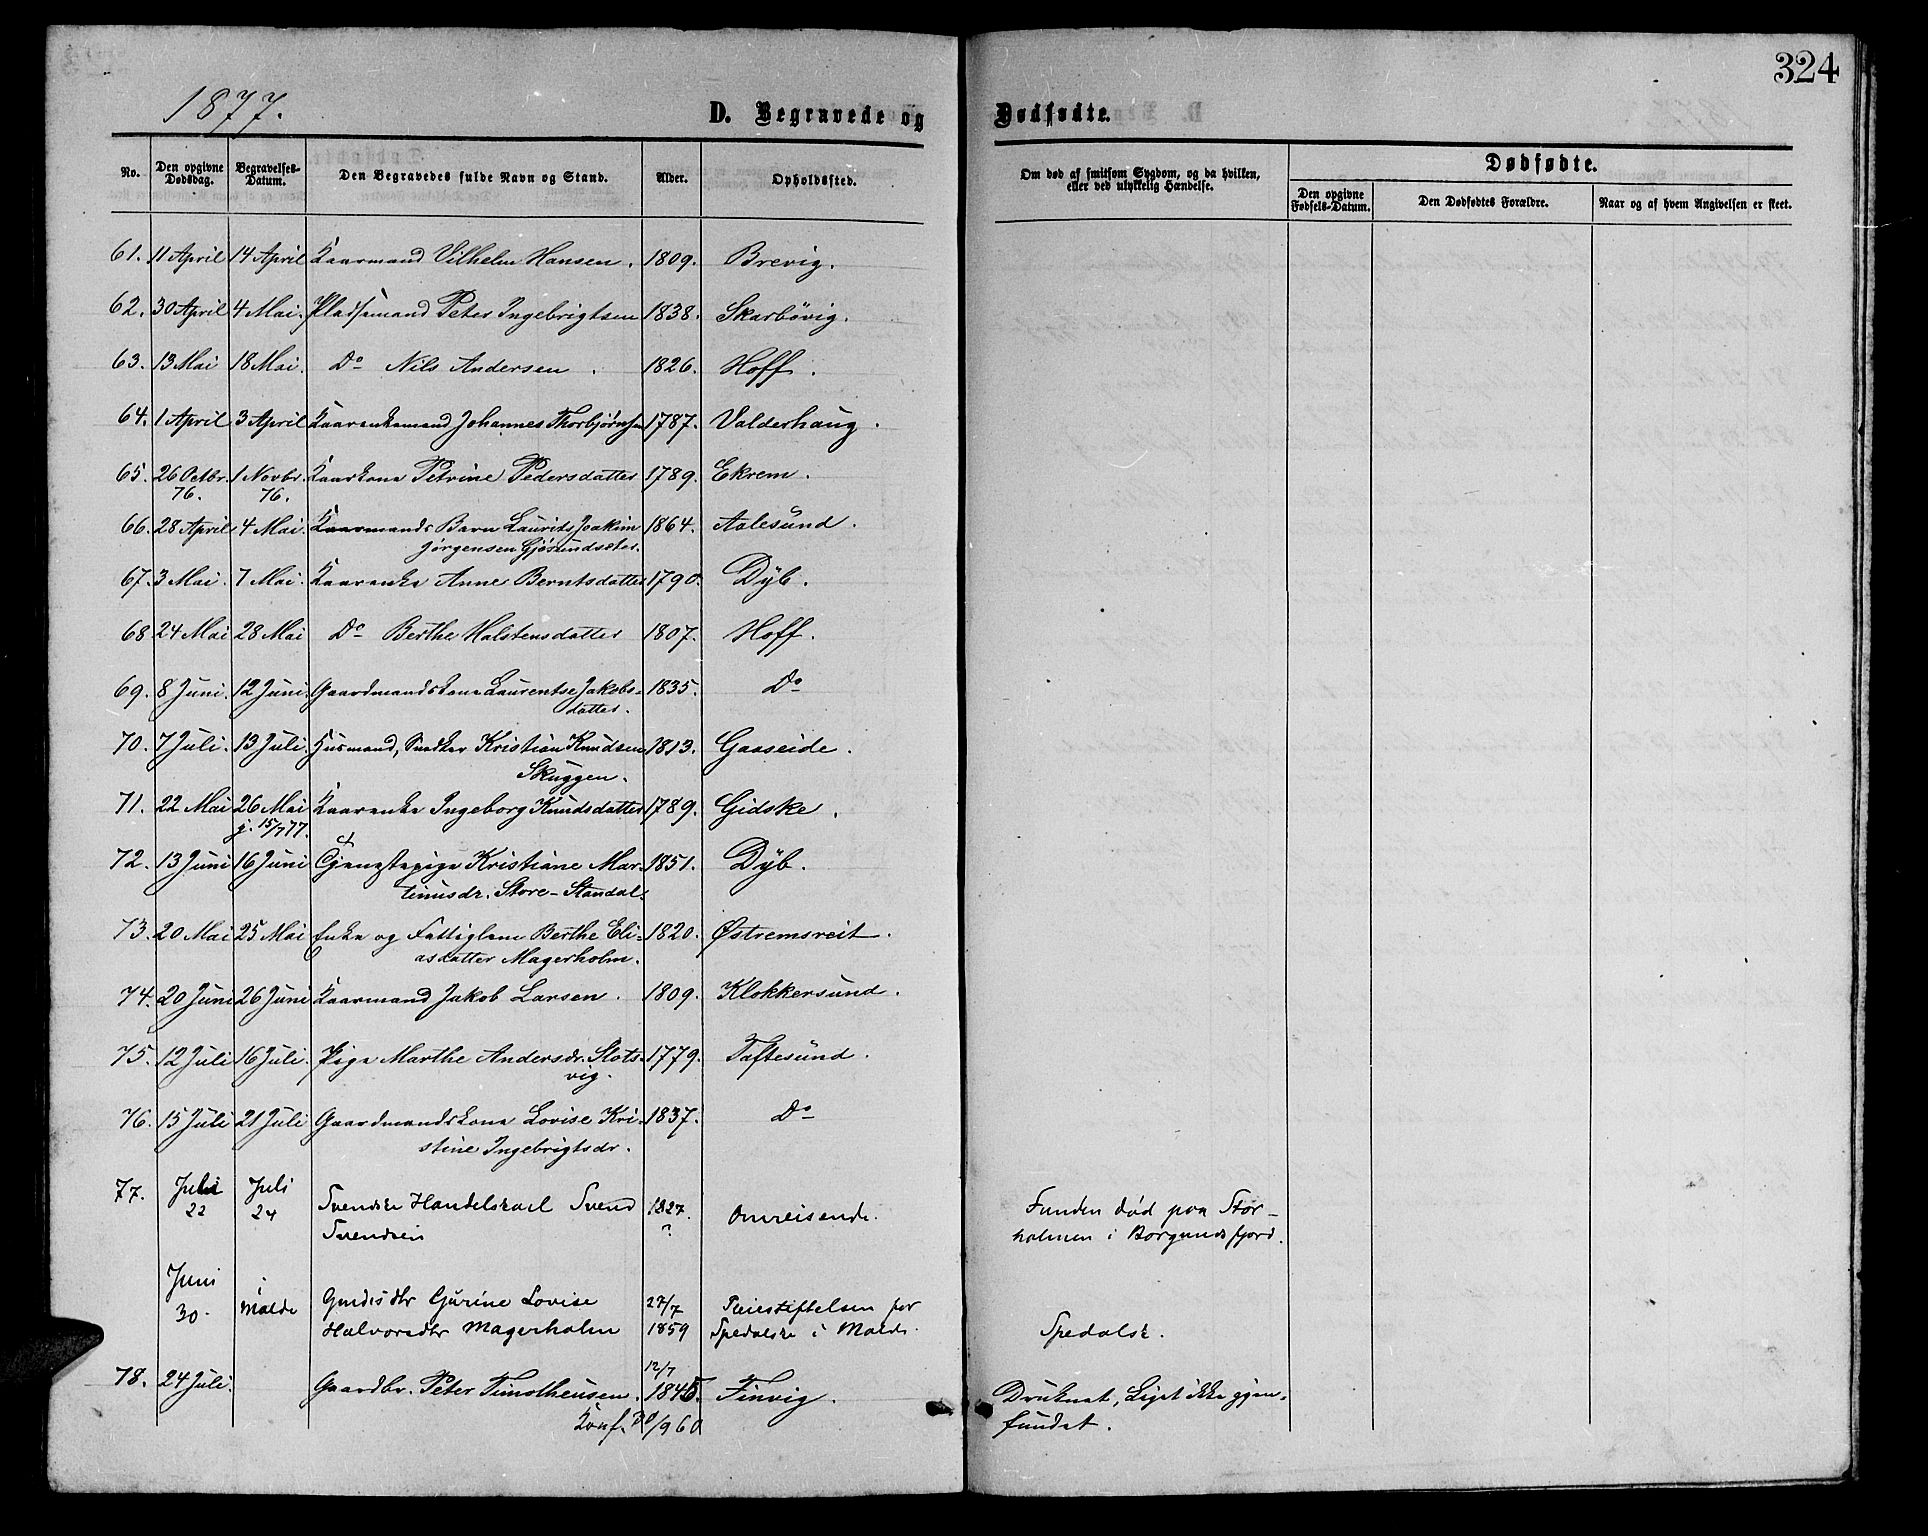 324
1877.
D. Begravede og Dødfødte.
No. Den opgivne Dødsdag. Begravelses-Datum. Den Begravedes fulde Navn og Stand. Alder. Opholdssted. Om død af smitsom Sygdom, og da hvilken, eller ved ulykkelig Hændelse. Dødfødte.
Den opgivne Fødsels-Datum. Den Dødfødtes Forældre. Naar og af hvem Angivelsen er skeet.
61. 11 April 14 April Kaarmand Vilhelm Hansen. 1809. Brevig.
62. 30 April 4 Mai. Pladsemand Peter Ingebrigtsen 1838. Skarbövig.
63. 13 Mai 18 Mai. Do Nils Andersen. 1826. Hoff.
64. 1 April 3 April Kaarenkemand Johannes Thorbjørnsen 1787. Valderhaug.
65. 26 Octbr. 1 Novbr. Kaarkone Petrine Pedersdatter 1789. Ekrem.
76. 76.
66. 28 April 4 Mai. Kaarmands Barn Laurits Joakim 1864. Aalesund.
Jørgensen Gjøsundsæter.
67. 3 Mai. 7 Mai. Kaarenke Anne Berntsdatter 1790. Dyb.
68 24 Mai 28 Mai Do Berthe Halstensdatter 1807. Hoff.
69. 8 Juni. 12 Juni. Gaardmandskone Laurentse Jakobs- 1835. Do
datter.
70. 7 Juli. 13 Juli. Husmand, Snedker Kristian Knudsen 1813. Gaaseide.
Skuggen.
71. 22 Mai 26 Mai Kaarenke Ingeborg Knudsdatter 1789. Gidske.
j. 15/7 77.
72. 13 Juni 16 Juni Tjenestepige Kristiane Mar- 1851. Dyb.
tinusdr. Store-Standal.
73. 20 Mai 25 Mai Enke og Fattiglem Berthe Eli- 1820. Østremsreit.
asdatter Magerholm.
74. 20 Juni 26 Juni Kaarmand Jakob Larsen. 1809. Klokkersund.
75. 12 Juli 16 Juli. Pige Marthe Andersdr. Slots- 1779. Taftesund.
vig.
76. 15 Juli 21 Juli Gaardmandskone Lovise Kri- 1837. Do
stine Ingebrigtsdr.
77. Juli 22 Juli 24 Svenske Handelskarl Svend 1827. ? Omreisende. Funden død paa Stor-
Svendsen holmen i Borgundfjord.
Juni 30. i Molde Gurine Lovise 27/7 Pleiestiftelsen for
Halvorsdtr Magerholm 1859 Spedalske i Molde. Spedalsk.
78. 24 Juli. Gaardbr. Peter Timotheusen. 12/7 1845. Finvig. Druknet, Liget ikke gjen-
Konf. 30/9 60 fundet.